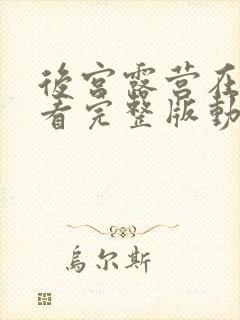 後宫露营在
看完整版動
烏尔斯